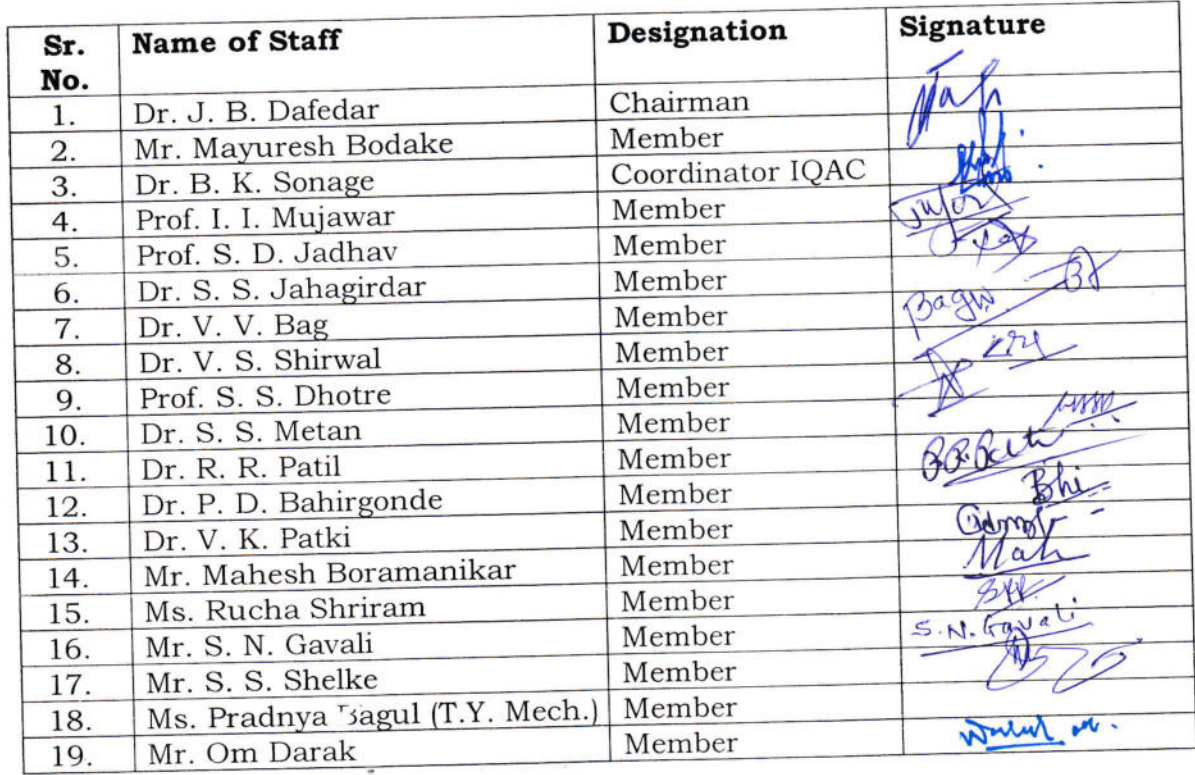 Sr. No. Name of Staff Designation Signature
1. Dr. J. B. Dafedar Chairman
2. Mr. Mayuresh Bodake Member
3. Dr. B. K. Sonage Coordinator IQAC
4. Prof. I. I. Mujawar Member
5. Prof. S. D. Jadhav Member
6. Dr. S. S. Jahagirdar Member
7. Dr. V. V. Bag Member
8. Dr. V. S. Shirwal Member
9. Prof. S. S. Dhotre Member
10. Dr. S. S. Metan Member
11. Dr. R. R. Patil Member
12. Dr. P. D. Bahirgonde Member
13. Dr. V. K. Patki Member
14. Mr. Mahesh Boramanikar Member
15. Ms. Rucha Shriram Member
16. Mr. S. N. Gavali Member S.N. Gavali
17. Mr. S. S. Shelke Member
18. Ms. Pradnya (T.Y. Mech.) Member
19. Mr. Om Darak Member